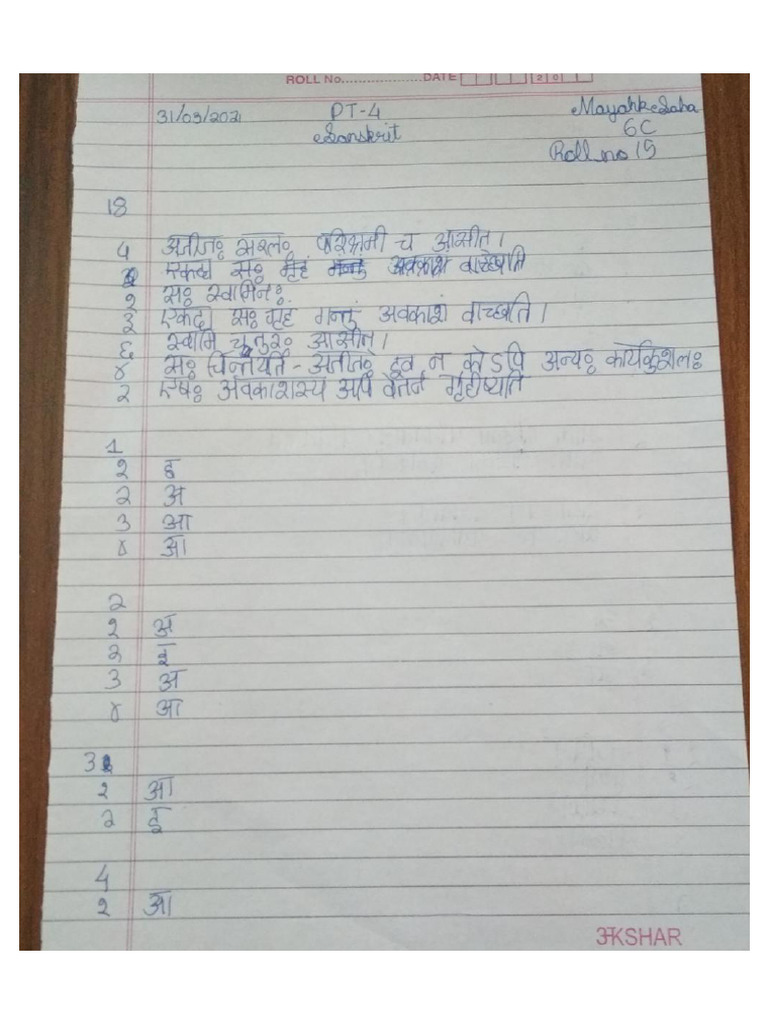 ROLL No.....................DATE 2 0
31/03/2021 PT-4 Mayank Saha
Sanskrit 6C
Roll no 15
18
५ अजीजः सरलः परिश्रमी च आसीत्।
एकदा सः गृहं गन्तुं अवकाश वाच्छति
१ सः स्वामिनः
३ एकदा सः गृहं गन्तुं अवकाशं वाच्छति।
६ स्वामि चतुरः आसीत्।
४ सः चिन्तयति - अजीजः इव न कोऽपि अन्यः कार्यकुशलः
२ एषः अवकाशस्य अपि वेतनं गृहीष्यति
1
१ इ
२ अ
३ आ
४ आ
2
१ अ
२ इ
३ अ
४ आ
3
१ आ
२ ई
4
१ आ
अKSHAR